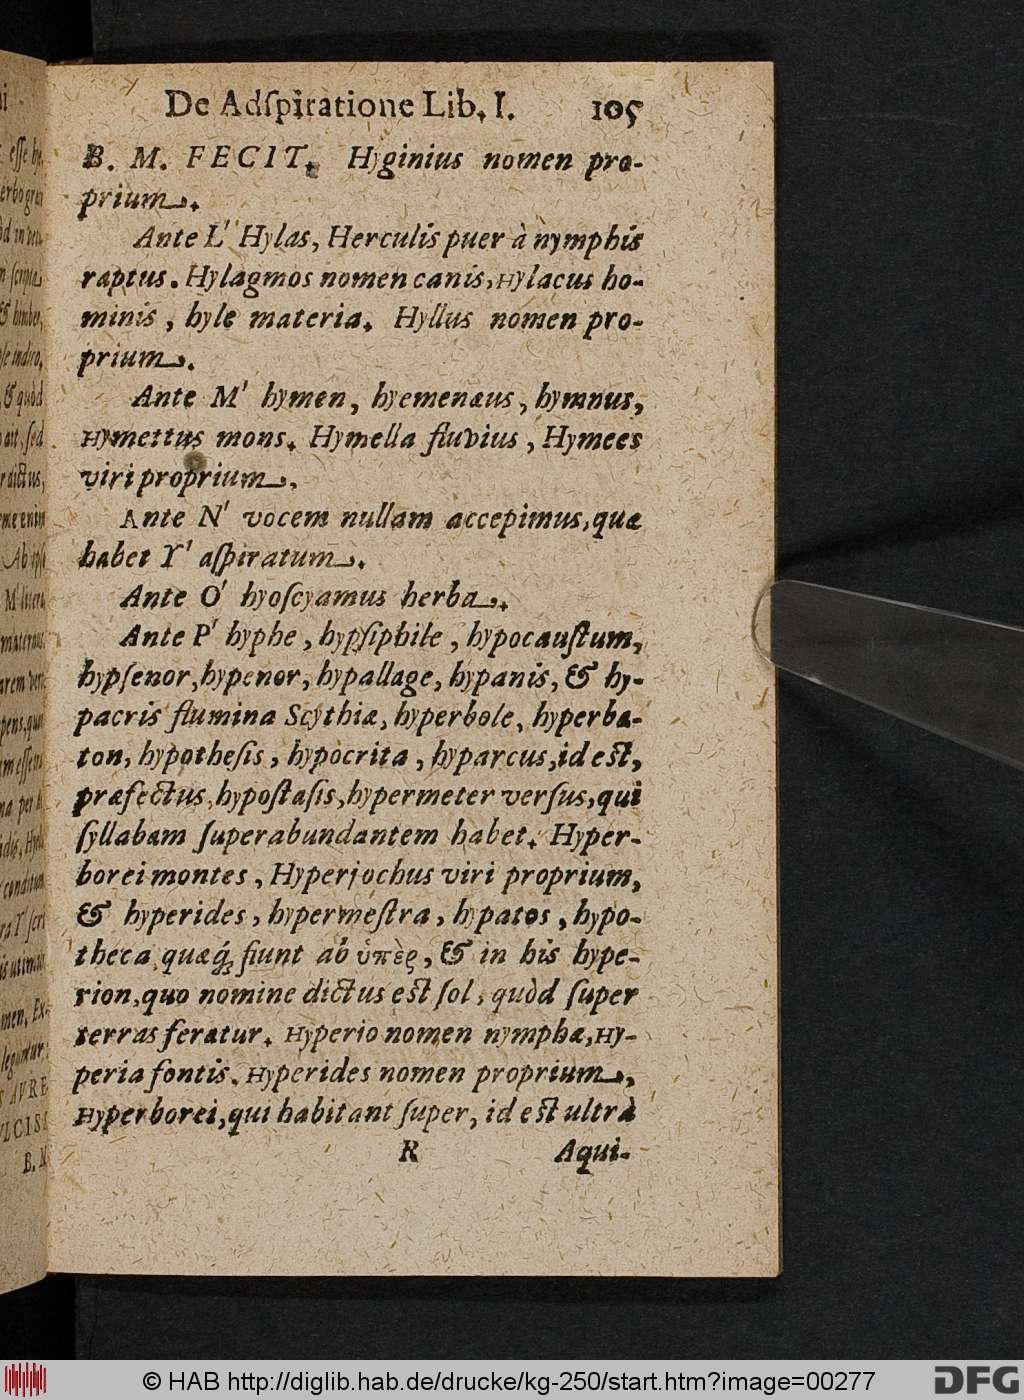 De Adſpiratione Lib. I. 105
B. M. FECIT. Hyginius nomen pro-
prium.
Ante L' Hylas, Herculis puer à nymphis
raptus. Hylagmos nomen canis, Hylacus ho-
minis, hyle materia. Hyllus nomen pro-
prium.
Ante M' hymen, hyemenæus, hymnus,
Hymettus mons. Hymella fluvius, Hymees
viri proprium.
Ante N' vocem nullam accepimus, quæ
habet Y' aſpiratum.
Ante O' hyoſcyamus herba.
Ante P' hyphe, hypſiphile, hypocauſtum,
hypſenor, hypenor, hypallage, hypanis, & hy-
pacris flumina Scythiæ, hyperbole, hyperba-
ton, hypotheſis, hypocrita, hyparcus, id eſt,
præfectus, hypoſtaſis, hypermeter verſus, qui
ſyllabam ſuperabundantem habet. Hyper-
borei montes, Hyperjochus viri proprium,
& hyperides, hypermeſtra, hypatos, hypo-
theca quæq́; fiunt ab ὑπὲρ, & in his hype-
rion, quo nomine dictus eſt ſol, quòd ſuper
terras feratur. Hyperio nomen nymphæ, Hy-
peria fontis. Hyperides nomen proprium,
Hyperborei, qui habitant ſuper, id eſt ultrà
R Aqui-
© HAB http://diglib.hab.de/drucke/kg-250/start.htm?image=00277
DFG